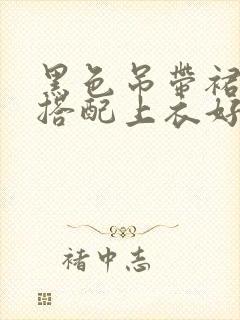 黑色吊帶裙
搭配上衣好
褚中志